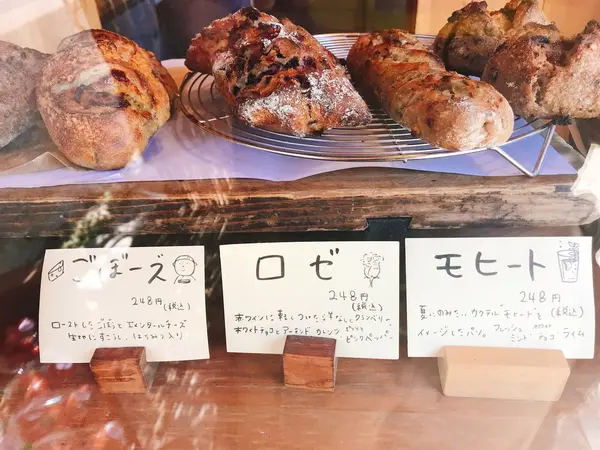 ごぼーズ
248円
(税込)
ローストしたごぼうとエメンタールチーズ
黒こしょう、はちみつ入り
ロゼ
248円
(税込)
赤ワインに漬けておいた洋なしとクランベリー
ホワイトチョコとアーモンド、オレンジ
ピンクペッパー
モヒート
248円
(税込)
夏にのみたいカクテル「モヒート」を
イメージしたパン。フレッシュミント ホワイトチョコ ライム